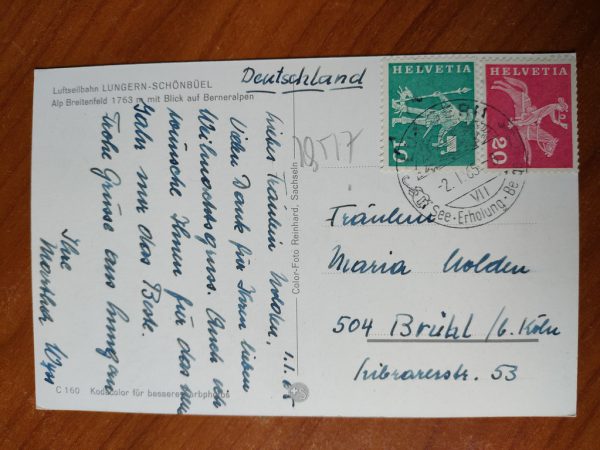 Luftseilbahn LUNGERN-SCHÖNBÜEL
Alp Breitenfeld 1763 m mit Blick auf Berneralpen
Deutschland
HELVETIA
10
HELVETIA
20
-2.I.65
VII
See-Erholung-Be
1.1.65
Liebes Fräulein Nolden,
Vielen Dank für Ihren lieben
Weihnachtsgruss. Auch ich
wünsche Ihnen für das neue
Jahr nur das Beste.
Frohe Grüsse aus Lungern
Ihre
Martha Wyss
Color-Foto Reinhard, Sachseln
Fräulein
Maria Nolden
504 Brühl /b. Köln
53
C 160 Kodacolor für bessere Farbphotos